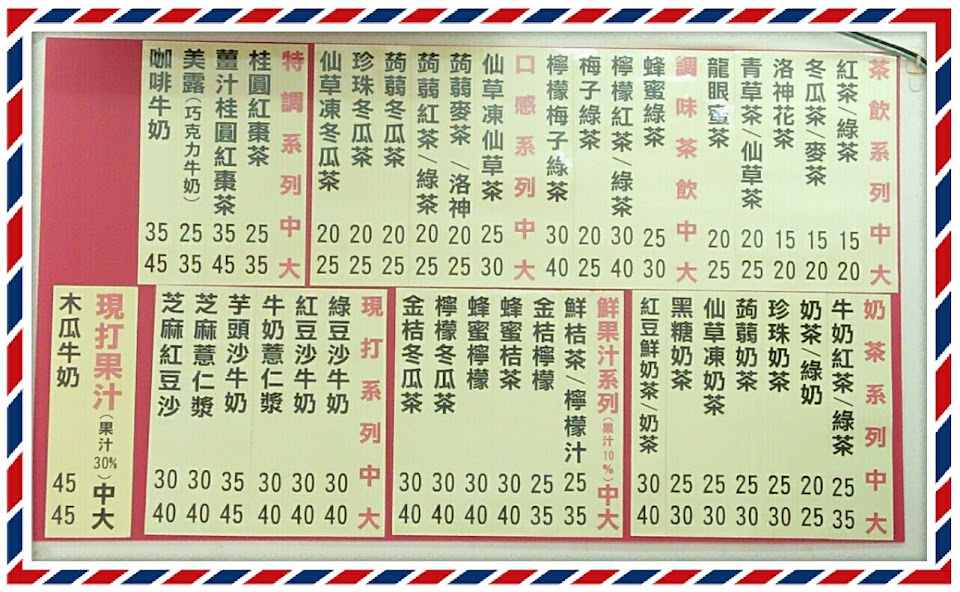 茶飲系列 中 大
紅茶/綠茶 15 20
冬瓜茶/麥茶 15 20
洛神花茶 15 20
青草茶/仙草茶 20 25
龍眼蜜茶 20 25
調味茶飲 中 大
蜂蜜綠茶 25 30
檸檬紅茶/綠茶 30 40
梅子綠茶 20 25
檸檬梅子綠茶 30 40
口感系列 中 大
仙草凍仙草茶 25 30
蒟蒻麥茶/洛神 20 25
蒟蒻紅茶/綠茶 20 25
蒟蒻冬瓜茶 20 25
珍珠冬瓜茶 20 25
仙草凍冬瓜茶 20 25
特調系列 中 大
桂圓紅棗茶 25 35
薑汁桂圓紅棗茶 35 45
美露(巧克力牛奶) 25 35
咖啡牛奶 35 45
奶茶系列 中 大
牛奶紅茶/綠茶 25 35
奶茶/綠奶 20 25
珍珠奶茶 25 30
蒟蒻奶茶 25 30
仙草凍奶茶 25 30
黑糖奶茶 25 30
紅豆鮮奶茶/奶茶 30 40
鮮果汁系列(果汁10%) 中 大
鮮桔茶/檸檬汁 25 35
金桔檸檬 25 35
蜂蜜桔茶 30 40
蜂蜜檸檬 30 40
檸檬冬瓜茶 30 40
金桔冬瓜茶 30 40
現打系列 中 大
綠豆沙牛奶 30 40
紅豆沙牛奶 30 40
牛奶薏仁漿 30 40
芋頭沙牛奶 35 45
芝麻薏仁漿 30 40
芝麻紅豆沙 30 40
現打果汁(果汁30%) 中 大
木瓜牛奶 45 45